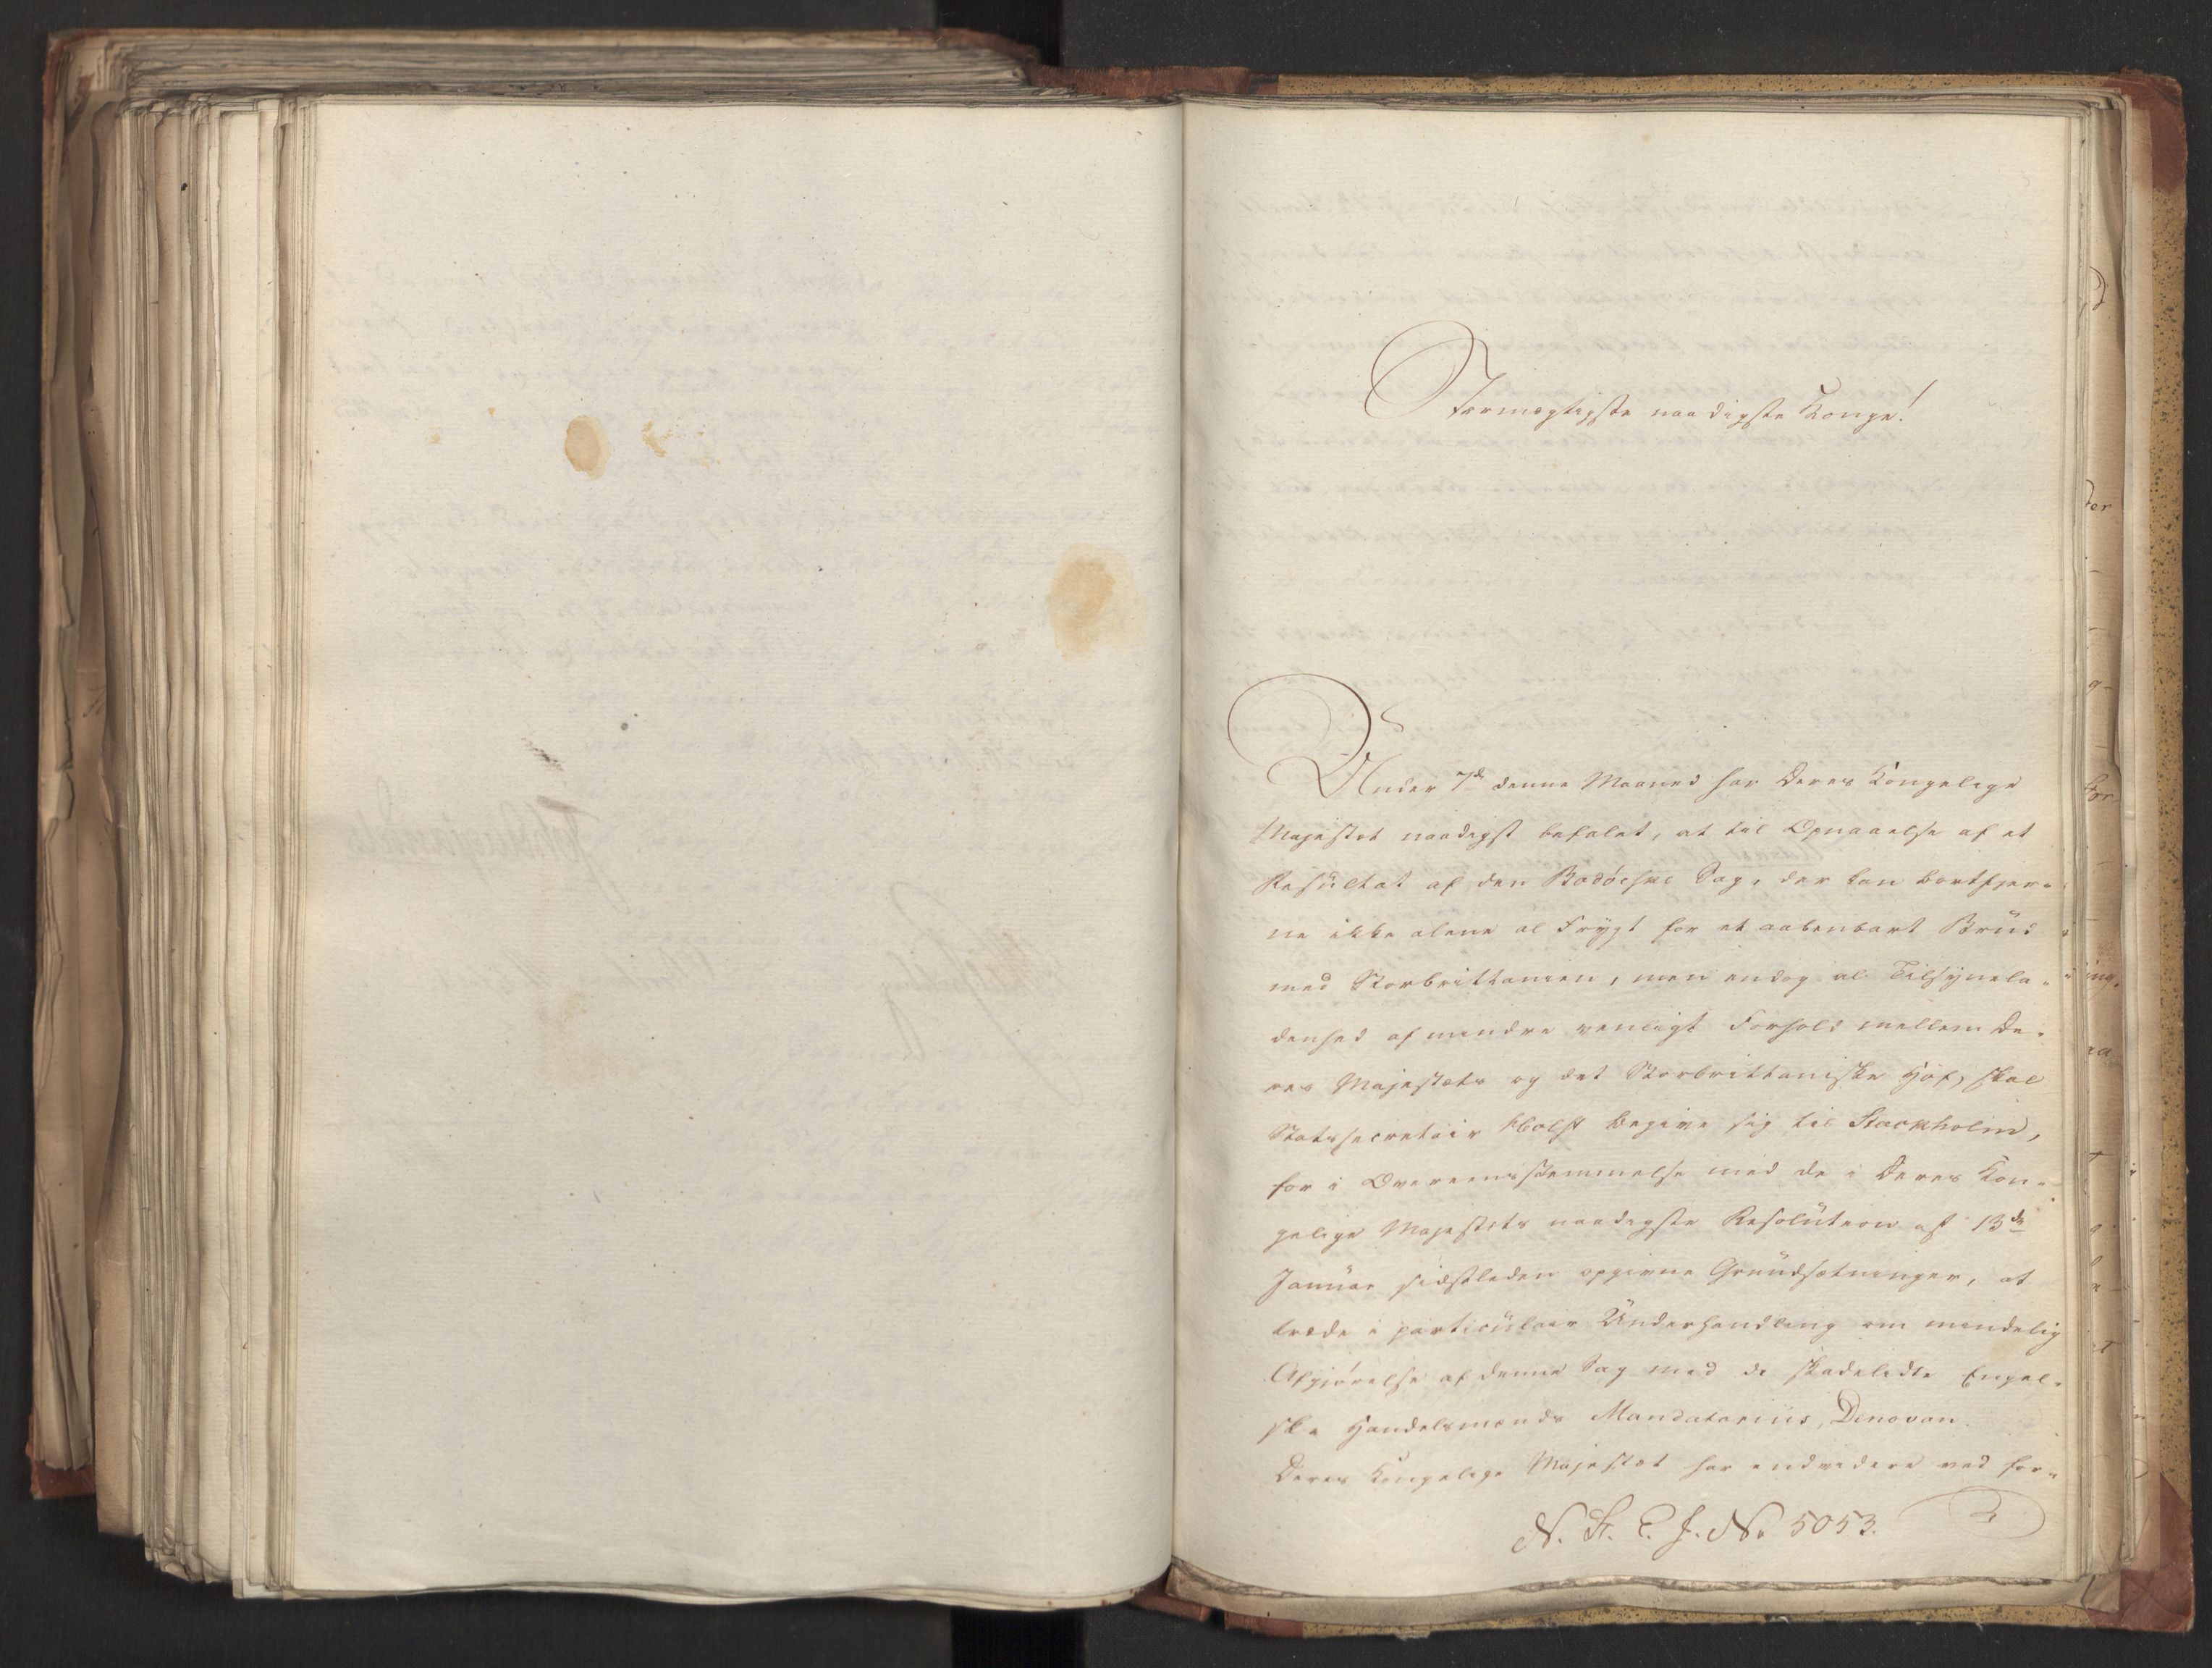 Stormægtigste naadigste Konge!
Under 7de denne Maaned har Deres Kongelige
Majestet naadigst befalet, at til Opnaaelse af et
Resultat af den Bodöeske Sag, der kan bortfjer-
ne ikke alene al Frygt for et aabenbart Brud
med Storbrittanien, men endog al Tilsynela-
denhed af mindre venligt Forhold mellem De-
res Majestets og det Storbrittaniske Hof, skal
Statssecretair Holst begive sig til Stockholm,
for i Overeensstemmelse med de i Deres Kon-
gelige Majestets naadigste Resolution af 13de
Januar sidstleden opgivne Grundsætninger, at
træde i particulair Underhandling om mindelig
Afgjörelse af denne Sag med de skadelidte Engel-
ske Handelsmænds Mandatarius, Denovan.
Deres Kongelige Majestet har endvidere ved for-
N. St. C. J. No 5053.